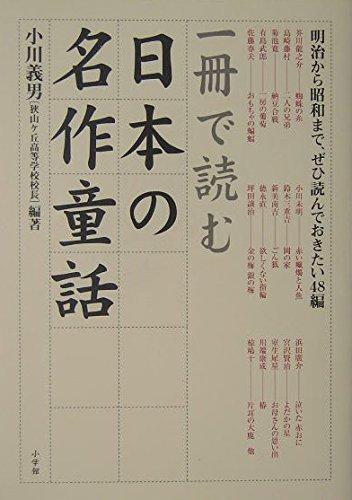 明治から昭和まで、ぜひ読んでおきたい48編
芥川龍之介 蜘蛛の糸
島崎藤村 二人の兄弟
菊池寛 納豆合戦
有島武郎 一房の葡萄
佐藤春夫 おもちゃの蝙蝠
小川未明 赤い蠟燭と人魚
鈴木三重吉 岡の家
新美南吉 ごん狐
徳永直 欲しくない指輪
坪田譲治 金の梅 銀の梅
浜田廣介 泣いた赤おに
宮沢賢治 よだかの星
室生犀星 お母さんの思い出
川端康成 椿
椋鳩十 片耳の大鹿 他
一冊で読む
日本の
名作童話
小川義男[狭山ヶ丘高等学校校長]編著
小学館